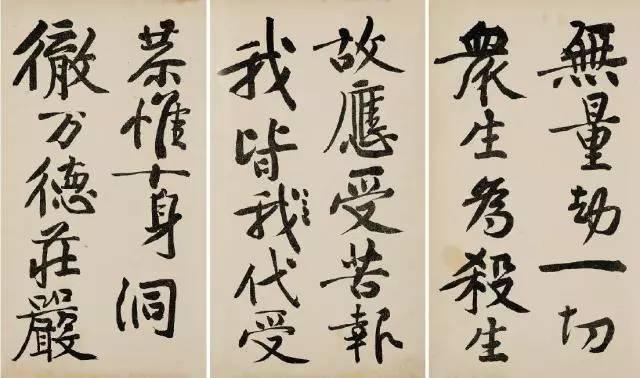 無量劫一切
眾生為殺生
故應受苦報
我皆我代受
恭惟十身洞
徹万德莊嚴